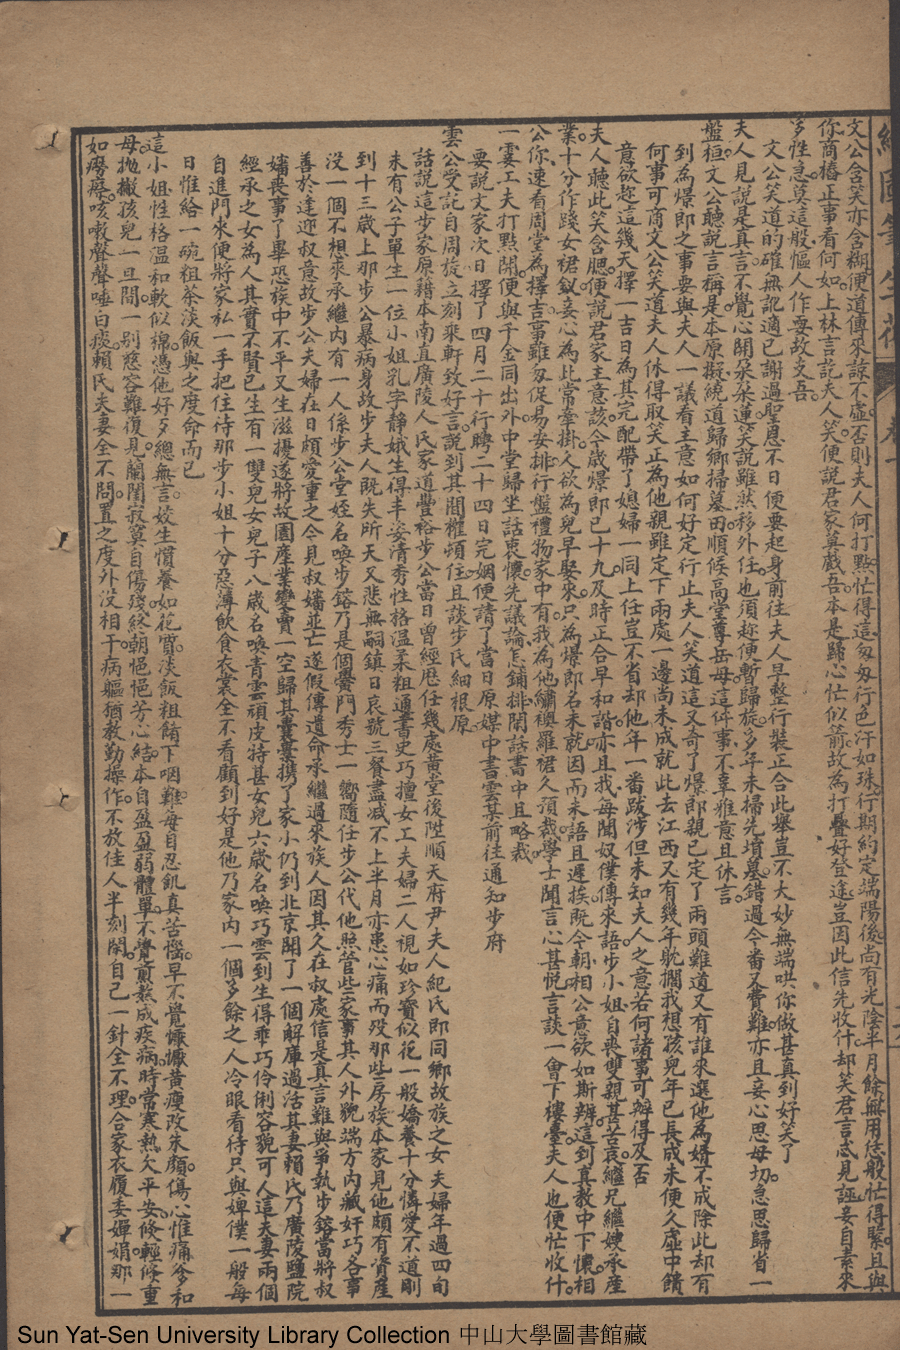 繪圖筆生花 卷一
文公含笑亦含糊。便道傳來諒不虛。否則夫人何打點。忙得這匆匆行色汗如珠。行期約定端陽後。尚有光陰半月餘。無用恁般忙得緊。且與
你商樁正事看何如。上林言說夫人笑。便說君家莫戲吾。本是歸心忙似箭。故為打疊好登途。豈因此信先收什。却笑君言忒見誣。妾自素來
多性急。莫這般慪人作耍故支吾
文公笑道的確無訛適已謝過聖恩不日便要起身前往夫人早整行裝正合此舉豈不大妙無端哄你做甚真到好笑了
夫人見說是真言。不覺心開朵朵蓮。笑說雖然移外任。也須趁便暫歸旋。多年未掃先墳墓。錯過今番又費難。亦且妾心思母切。急思歸省一
盤桓。文公聽說言稱是。本原擬繞道歸鄉掃墓田。順候高堂尊岳母。這件事不辜雅意且休言。
到為憬郎之事要與夫人一議看主意如何好定行止夫人笑道這又奇了憬郎親已定了兩頭難道又有誰來選他為婿不成除此却有
何事可商文公笑道夫人休得取笑正為他親雖定下兩處一邊尚未成就此去江西又有幾年躭擱我想孩兒年已長成未便久虛中饋
意欲趁這幾天擇一吉日為其完配帶了媳婦一同上任豈不省却他年一番跋涉但未知夫人之意若何諸事可辦得及否
夫人聽此笑含腮。便說君家主意該。今歲憬郎已十九。及時正合早和諧。亦且我每聞奴僕傳來語。步小姐自喪雙親甚苦哀。繼兄繼嫂承產
業。十分作踐女裙釵。妾心為此常牽掛。久欲為兒早娶來。只為憬郎名未就。因而未語且遲挨。既今朝相公意欲如斯辦。這到真教中下懷。相
公你速看周堂為擇吉。事雖匆促易安排。行盤禮物家中有。我為他繡襖羅裙久預裁。學士聞言心甚悅。言談一會下樓臺。夫人也便忙收什。
一霎工夫打點開。便與千金同出外。中堂歸坐話衷懷。先議論怎鋪排。閒話書中且略裁
要說文家次日擇了四月二十行聘二十四日完姻便請了當日原媒中書雲其前往通知步府
雲公受託自周旋。立刻來軒致好言。說到其間權頓住。且談步氏細根原。
話說這步家原籍本南直廣陵人氏家道豐裕步公當日曾經歷任幾處黃堂後陞順天府尹夫人紀氏即同鄉故族之女夫婦年過四旬
未有公子單生一位小姐乳字靜娥生得丰姿清秀性格溫柔粗通書史巧擅女工夫婦二人視如珍寶似花一般嬌養十分憐愛不道剛
到十三歲上那步公暴病身故步夫人既失所天又悲無嗣鎮日哀號三餐盡減不上半月亦患心痛而歿那些房族本家見他頗有資產
沒一個不想求承繼內有一人係步公堂姪名喚步鎔乃是個黌門秀士一嚮隨任步公代他照管些家事其人外貌端方內藏奸巧各事
善於逢迎叔意故步公夫婦在日頗愛重之今見叔嬸並亡遂假傳遺命承繼過來族人因其久在叔處信是真言難與爭執步鎔當將叔
嬸喪事了畢恐族中不平又生滋擾遂將故園產業變賣一空歸其囊橐攜了家小仍到北京開了一個解庫過活其妻賴氏乃廣陵鹽院
經承之女為人其實不賢已生有一雙兒女兒子八歲名喚青雲頑皮特甚女兒六歲名喚巧雲到生得乖巧伶俐容貌可人這夫妻兩個
自進門來便將家私一手把住待那步小姐十分惡薄飲食衣裳全不看顧到好是他乃家內一個多餘之人冷眼看待只與婢僕一般每
日惟給一碗粗茶淡飯與之度命而已
這小姐性格溫和軟似棉。憑他好歹總無言。姣生慣養如花貴。淡飯粗餚下咽難。每自忍飢真苦惱。早不覺懨懨黃瘦改朱顏。傷心惟痛爹和
母。拋撇孩兒一旦間。一別慈容難復見。蘭閨寂寞自傷殘。終朝悒悒芳心結。本自盈盈弱體單。不覺煎熬成疾病。時常寒熱欠平安。倏輕倏重
如癆瘵。咳嗽聲聲唾白痰。賴氏夫妻全不問。置之度外沒相干。病軀猶教勤操作。不放佳人半刻閑。自己一針全不理。合家衣履委嬋娟。那一
Sun Yat-Sen University Library Collection 中山大學圖書館藏